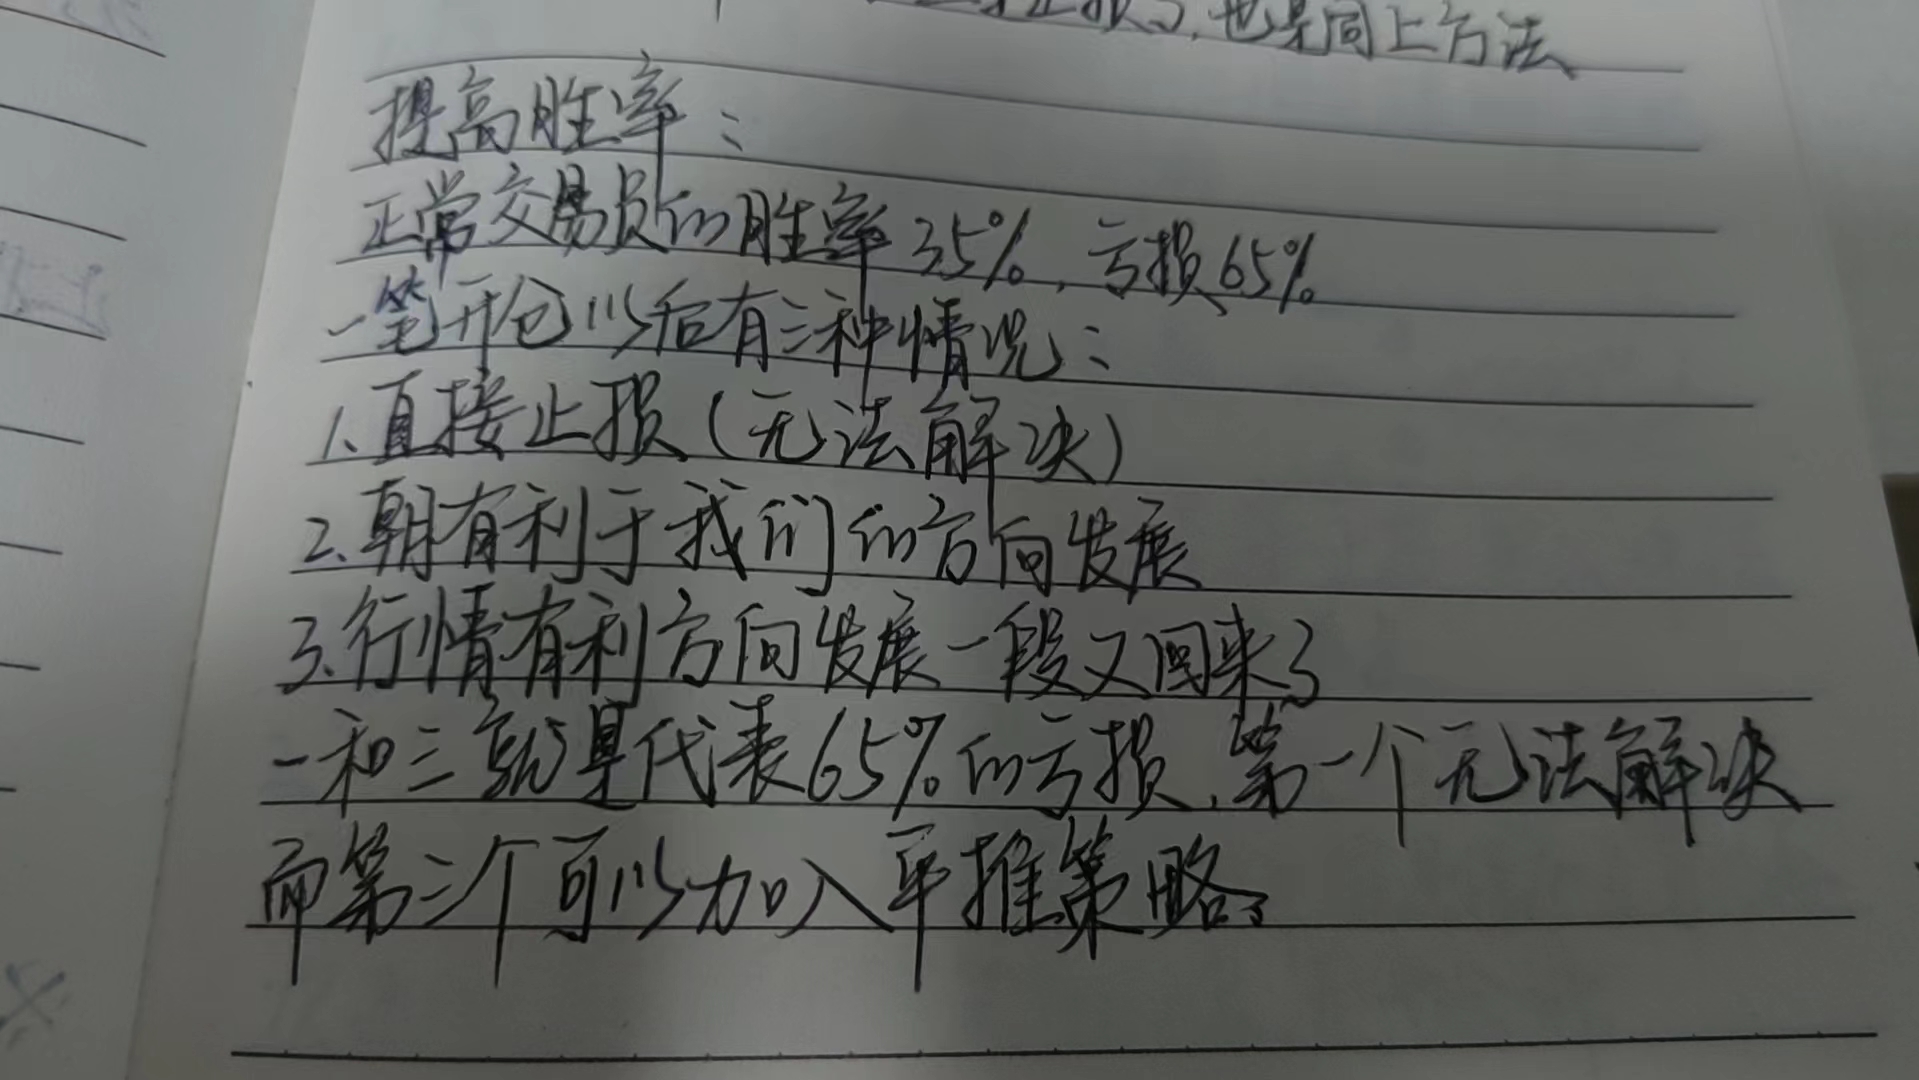 止损了，也是同上方法
提高胜率：
正常交易员的胜率35%，亏损65%
一笔开仓以后有三种情况：
1、直接止损（无法解决）
2、朝有利于我们的方向发展
3、行情有利方向发展一段又回来了
一和三就是代表65%的亏损，第一个无法解决
而第三个可以加入平推策略。